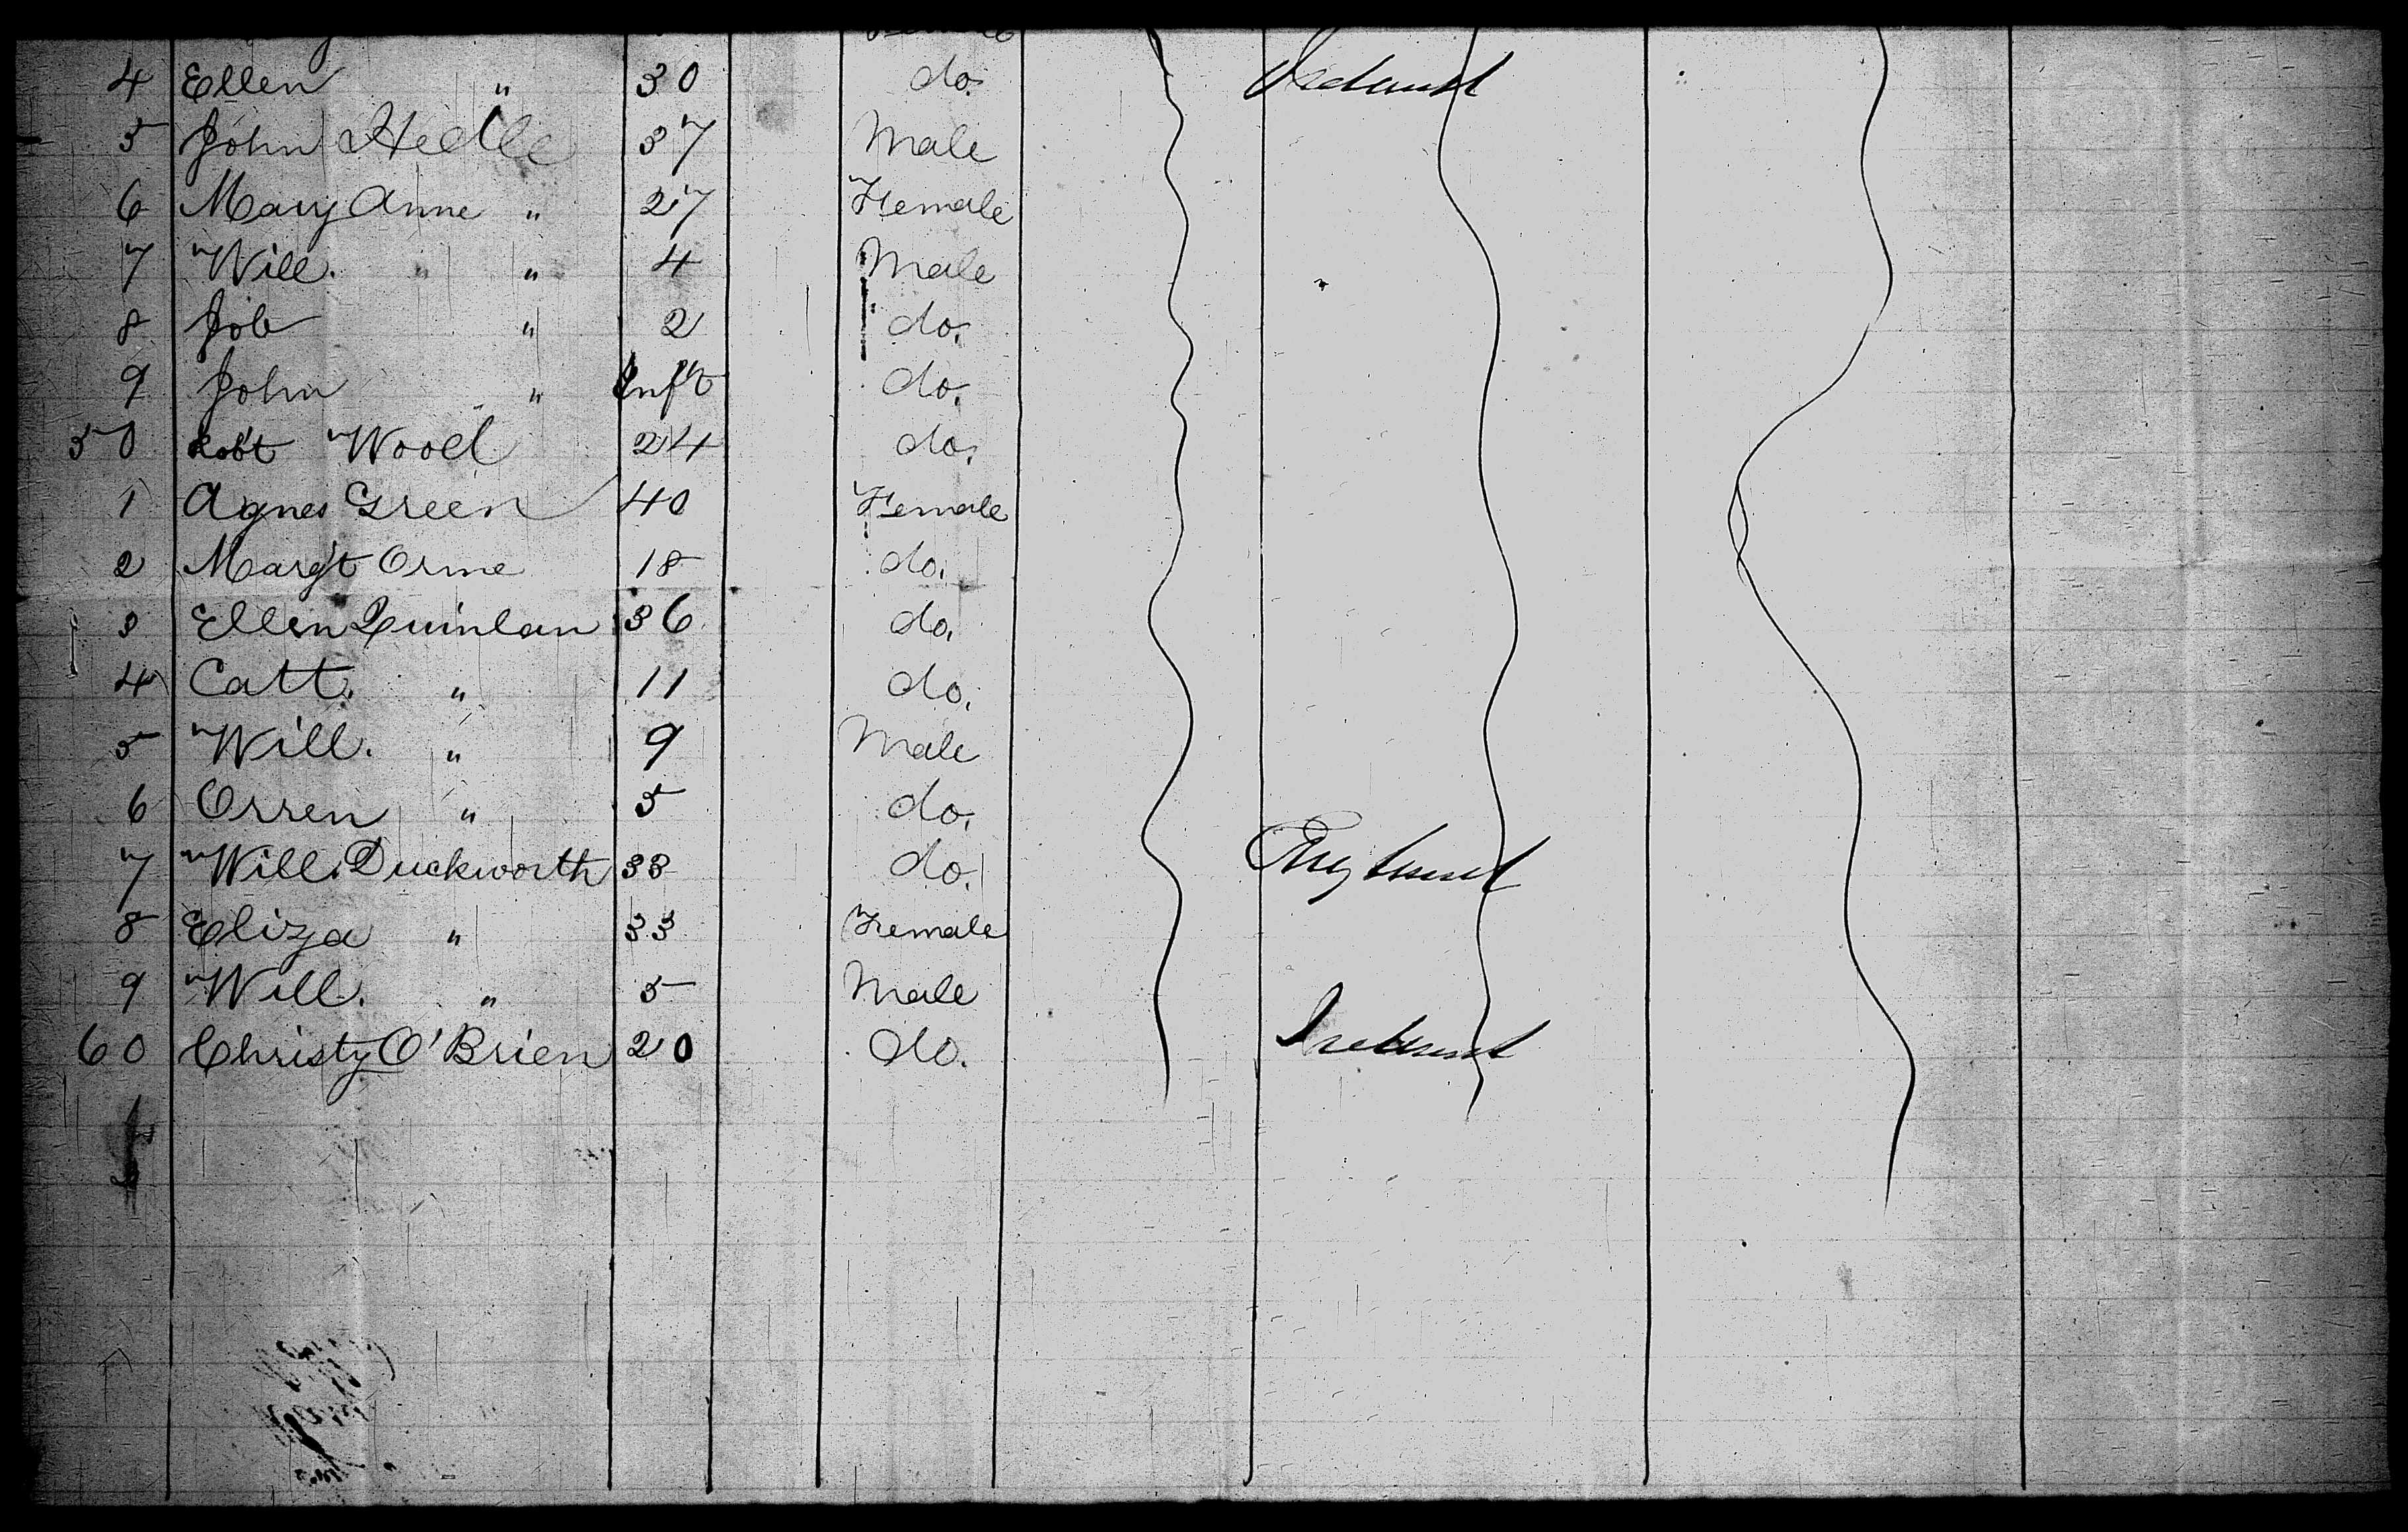 4 Ellen " 30 do. Ireland
5 John 37 Male
6 Mary Anne " 27 Female
7 Will. " " 4 Male
8 Job " 2 do.
9 John " Inf't do.
50 Rob't Wood 24 do.
1 Agnes Green 40 Female
2 Marg't Orme 18 do.
3 Ellen Quinlan 36 do.
4 Catt. " 11 do.
5 Will. " 9 Male
6 Orren " 5 do.
7 Will. Duckworth 33 do. England
8 Eliza " 33 Female
9 Will. " 5 Male
60 Christy O'Brien 20 do. Ireland